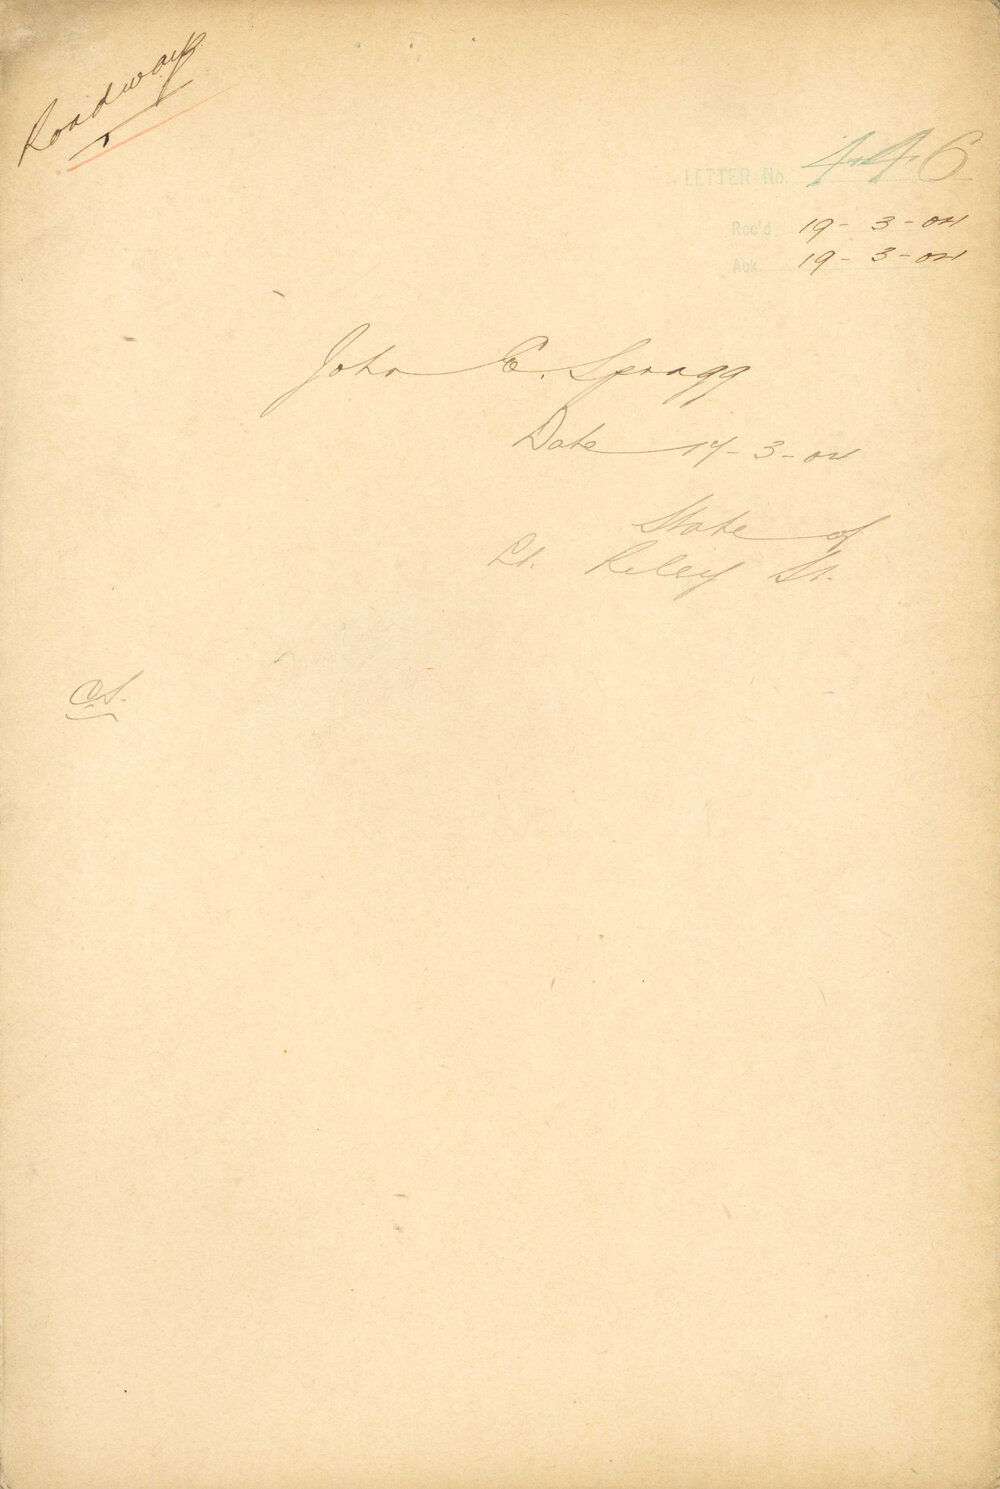 Roadway
LETTER No. 446
Rec'd 19-3-04
Ack. 19-3-04
John E. Spragg
Date 17-3-04
State of
Lt. Riley St.
C.S.